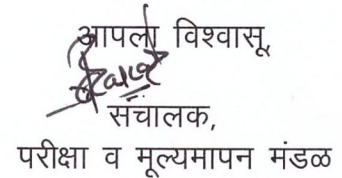 आपला विश्वासू,
संचालक,
परीक्षा व मूल्यमापन मंडळ